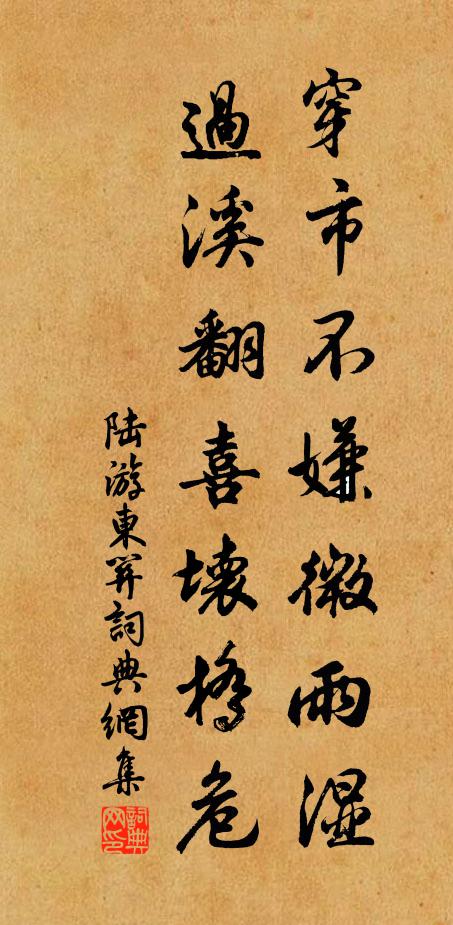 穿市不嫌微雨湿
過溪翻喜壞橋危
陆游東関詞典網集
詞典網印